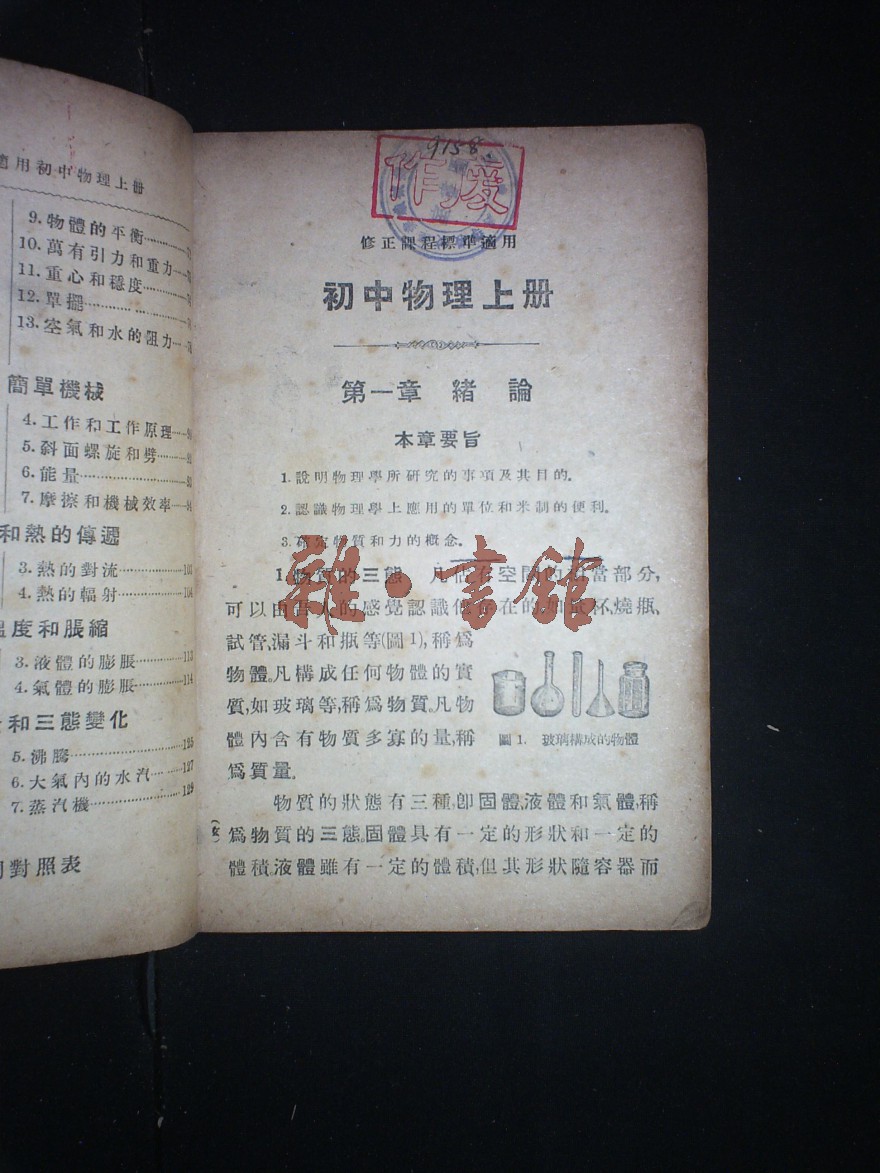 適用初中物理上册
9.物體的平衡
10.萬有引力和重力
11.重心和穩度
12.單擺
13.空氣和水的阻力
簡單機械
4.工作和工作原理
5.斜面螺旋和劈
6.能量
7.摩擦和機械效率
和熱的傳遞
3.熱的對流 101
4.熱的輻射 104
溫度和脹縮
3.液體的膨脹 113
4.氣體的膨脹 114
和三態變化
5.沸騰 125
6.大氣內的水汽 127
7.蒸汽機 129
對照表
9158
作廢
修正課程標準適用
初中物理上册
第一章 緒論
本章要旨
1.說明物理學所研究的事項及其目的。
2.認識物理學上應用的單位和米制的便利。
3.確定物質和力的概念。
雜·書館
1.物質的三態 凡佔有空間的相當部分,
可以由吾人的感覺認識他存在的,如量杯,燒瓶,
試管,漏斗和瓶等(圖1),稱爲
物體。凡構成任何物體的實
質,如玻璃等,稱爲物質。凡物
體內含有物質多寡的量,稱
爲質量。
圖1. 玻璃構成的物體
物質的狀態有三種,卽固體,液體和氣體,稱
爲物質的三態。固體具有一定的形狀和一定的
體積,液體雖有一定的體積,但其形狀隨容器而